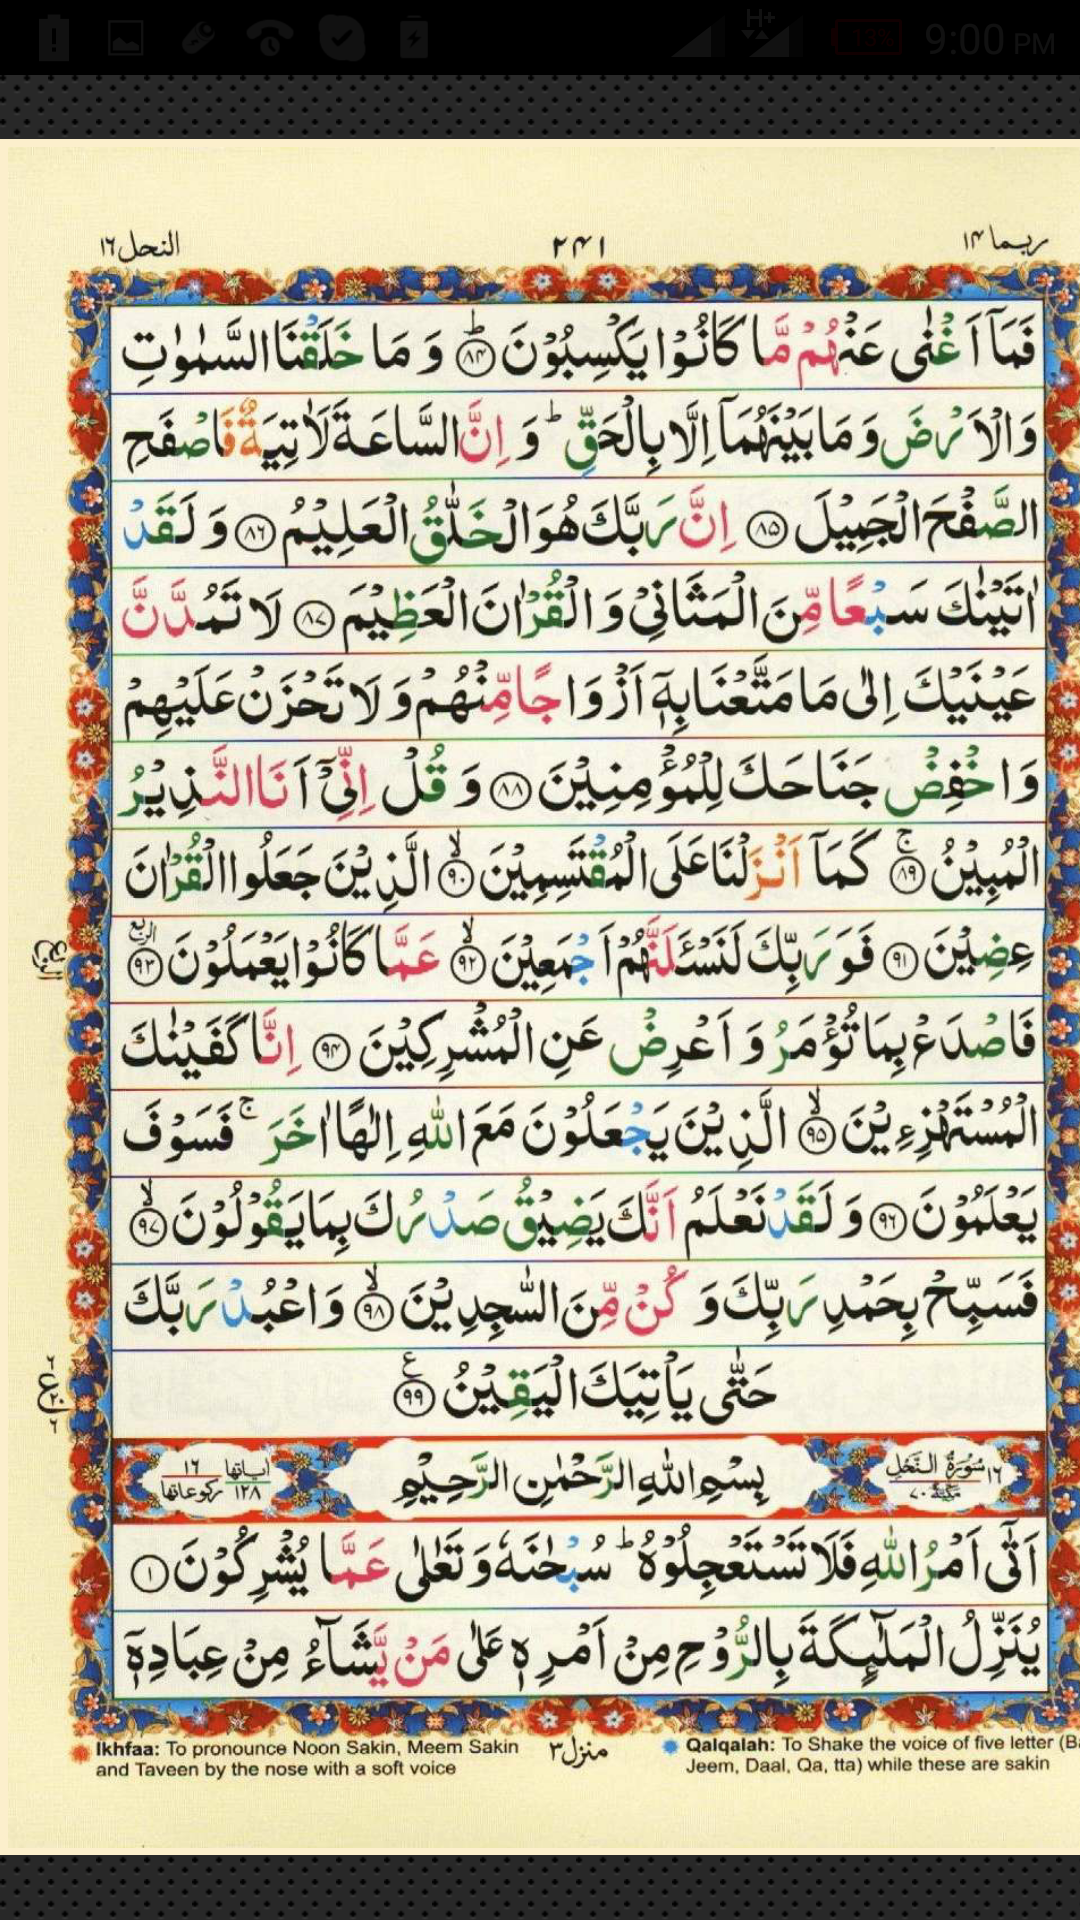 H+
13%
9:00 PM
النحل ١٦
٢٤١
ربما ١٤
فَمَاۤ اَغْنٰى عَنْهُمْ مَّا كَانُوْا يَكْسِبُوْنَؕ ﴿۸۴﴾ وَ مَا خَلَقْنَا السَّمٰوٰتِ
وَالْاَرْضَ وَ مَا بَيْنَهُمَاۤ اِلَّا بِالْحَقِّؕ وَ اِنَّ السَّاعَةَ لَاٰتِيَةٌ فَاصْفَحِ
الصَّفْحَ الْجَمِيْلَ ﴿۸۵﴾ اِنَّ رَبَّكَ هُوَ الْخَلّٰقُ الْعَلِيْمُ ﴿۸۶﴾ وَ لَقَدْ
اٰتَيْنٰكَ سَبْعًا مِّنَ الْمَثَانِيْ وَ الْقُرْاٰنَ الْعَظِيْمَ ﴿۸۷﴾ لَا تَمُدَّنَّ
عَيْنَيْكَ اِلٰى مَا مَتَّعْنَا بِهٖۤ اَزْوَاجًا مِّنْهُمْ وَ لَا تَحْزَنْ عَلَيْهِمْ
وَاخْفِضْ جَنَاحَكَ لِلْمُؤْمِنِيْنَ ﴿۸۸﴾ وَ قُلْ اِنِّيْۤ اَنَا النَّذِيْرُ
الْمُبِيْنُۚ ﴿۸۹﴾ كَمَاۤ اَنْزَلْنَا عَلَى الْمُقْتَسِمِيْنَۙ ﴿۹۰﴾ الَّذِيْنَ جَعَلُوا الْقُرْاٰنَ
عِضِيْنَ ﴿۹۱﴾ فَوَرَبِّكَ لَنَسْـَٔلَنَّهُمْ اَجْمَعِيْنَۙ ﴿۹۲﴾ عَمَّا كَانُوْا يَعْمَلُوْنَ ﴿۹۳﴾ الربع
فَاصْدَعْ بِمَا تُؤْمَرُ وَ اَعْرِضْ عَنِ الْمُشْرِكِيْنَ ﴿۹۴﴾ اِنَّا كَفَيْنٰكَ
الْمُسْتَهْزِءِيْنَۙ ﴿۹۵﴾ الَّذِيْنَ يَجْعَلُوْنَ مَعَ اللّٰهِ اِلٰهًا اٰخَرَۚ فَسَوْفَ
يَعْلَمُوْنَ ﴿۹۶﴾ وَ لَقَدْ نَعْلَمُ اَنَّكَ يَضِيْقُ صَدْرُكَ بِمَا يَقُوْلُوْنَۙ ﴿۹۷﴾
فَسَبِّحْ بِحَمْدِ رَبِّكَ وَ كُنْ مِّنَ السّٰجِدِيْنَۙ ﴿۹۸﴾ وَ اعْبُدْ رَبَّكَ
حَتّٰى يَاْتِيَكَ الْيَقِيْنُ ﴿۹۹﴾ ع
ع ٢٠ ٦ ٦
١٦ سُوْرَةُ النَّحْلِ مَكِّيَّةٌ ٧٠
بِسْمِ اللهِ الرَّحْمٰنِ الرَّحِيْمِ
اٰياتها ١٢٨ ركوعاتها ١٦
اَتٰۤى اَمْرُ اللّٰهِ فَلَا تَسْتَعْجِلُوْهُؕ سُبْحٰنَهٗ وَ تَعٰلٰى عَمَّا يُشْرِكُوْنَ ﴿۱﴾
يُنَزِّلُ الْمَلٰٓئِكَةَ بِالرُّوْحِ مِنْ اَمْرِهٖ عَلٰى مَنْ يَّشَآءُ مِنْ عِبَادِهٖۤ
منزل ٣
Ikhfaa: To pronounce Noon Sakin, Meem Sakin
and Taveen by the nose with a soft voice
Qalqalah: To Shake the voice of five letter (Ba
Jeem, Daal, Qa, tta) while these are sakin